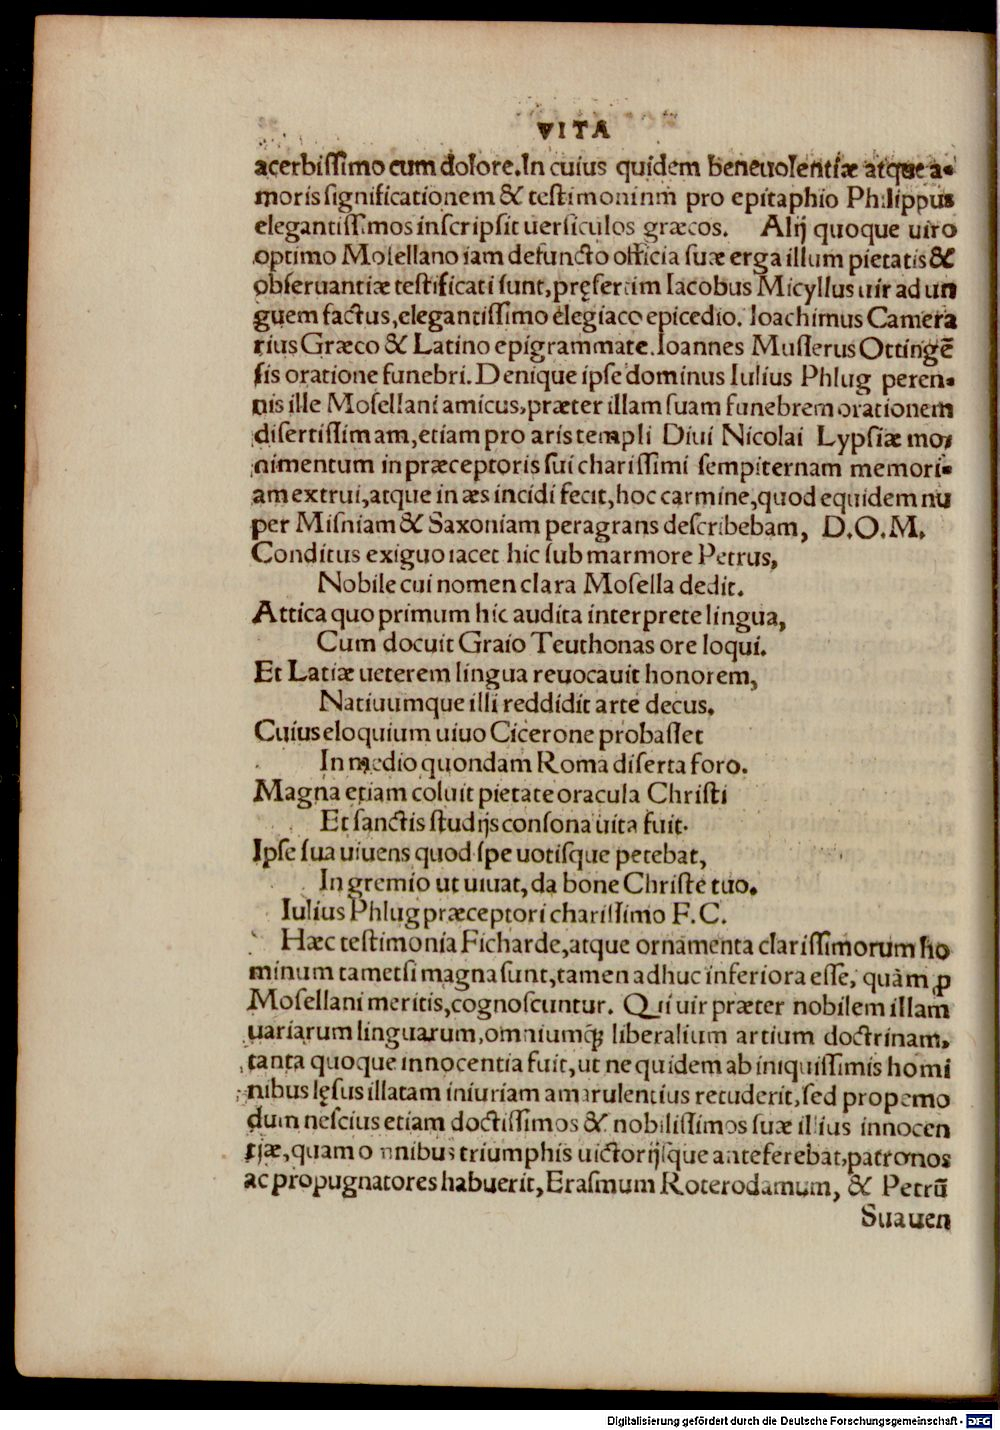 VITA
acerbissimo cum dolore. In cuius quidem beneuolentiæ atque a-
moris significationem & testimoninm pro epitaphio Philippus
elegantissimos inscripsit uersiculos græcos. Alij quoque uiro
optimo Mosellano iam defuncto officia suæ erga illum pietatis &
obseruantiæ testificati sunt, pręsertim Iacobus Micyllus uir ad un
guem factus, elegantissimo elegiaco epicedio. Ioachimus Camera
rius Græco & Latino epigrammate. Ioannes Muslerus Ottingẽ
sis oratione funebri. Denique ipse dominus Iulius Phlug peren-
nis ille Mosellani amicus, præter illam suam funebrem orationem
disertissimam, etiam pro aris templi Diui Nicolai Lypsiæ mo-
nimentum in præceptoris sui charissimi sempiternam memori-
am extrui, atque in æs incidi fecit, hoc carmine, quod equidem nu
per Misniam & Saxoniam peragrans describebam, D.O.M.
Conditus exiguo iacet hic sub marmore Petrus,
Nobile cui nomen clara Mosella dedit.
Attica quo primum hic audita interprete lingua,
Cum docuit Graio Teuthonas ore loqui.
Et Latiæ ueterem lingua reuocauit honorem,
Natiuumque illi reddidit arte decus.
Cuius eloquium uiuo Cicerone probasset
In medio quondam Roma diserta foro.
Magna etiam coluit pietate oracula Christi
Et sanctis studijs consona uita fuit.
Ipse sua uiuens quod spe uotisque petebat,
In gremio ut uiuat, da bone Christe tuo.
Iulius Phlug præceptori charissimo F.C.
Hæc testimonia Ficharde, atque ornamenta clarissimorum ho
minum tametsi magna sunt, tamen adhuc inferiora esse, quàm ꝓ
Mosellani meritis, cognoscuntur. Qui uir præter nobilem illam
uariarum linguarum, omniumq; liberalium artium doctrinam,
tanta quoque innocentia fuit, ut ne quidem ab iniquissimis homi
nibus lęsus illatam iniuriam amarulentius retuderit, sed propemo
dum nescius etiam doctissimos & nobilissimos suæ illius innocen
tiæ, quam omnibus triumphis uictorijsque anteferebat, patronos
ac propugnatores habuerit, Erasmum Roterodamum, & Petrū
Suauen
Digitalisierung gefördert durch die Deutsche Forschungsgemeinschaft - DFG